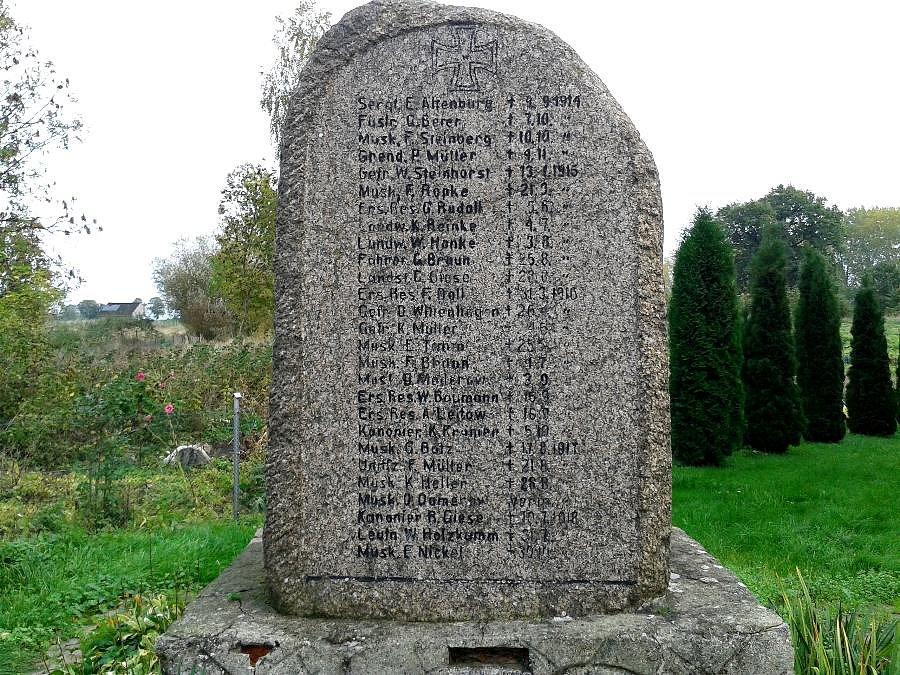 Sergt. E. Altenburg † 9. 9. 1914
Füslr. G. Berer † 7.10. "
Musk. F. Steinberg † 10.10. "
Grend. P. Müller † 9.11. "
Gefr. W. Steinhorst † 13. 1.1915
Musk. F. Röpke † 21. 3. "
Ers. Res. G. Rudolf "
Landw. K. Reinke † 4. 7. "
Landw. W. Hanke † 3. 8. "
Fahrer G. Braun † 25.8. "
Landst. G. Giese "
Ers. Res. F. Noll † 31.3.1916
Gefr. O. † 26. "
Gefr. K. Müller "
Musk. E. Timm "
Musk. F. Braun † 1.7. "
† 3. 9. "
Ers. Res. W. Baumann † 15.9. "
Ers. Res. A. Leitow † 16.9. "
Kanonier K. Kramer † 5.10. "
Musk. G. Bölz † 17.8.1917
Untfz. F. Müller † 21.8. "
Musk. K. Heller † 26.8. "
Musk. O. Damerow verm. "
Kanonier R. Giese 1918
Leutn. W. Holzkamm † 31.7. "
Musk. E. Nickel "